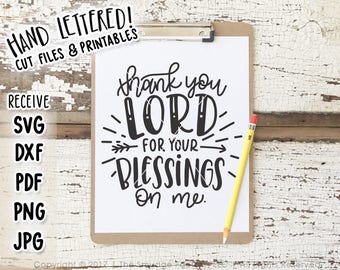 HAND LETTERED!
CUT FILES & PRINTABLES
RECEIVE
SVG
DXF
PDF
PNG
JPG
thank you
LORD
FOR YOUR
BLESSINGS
on me.